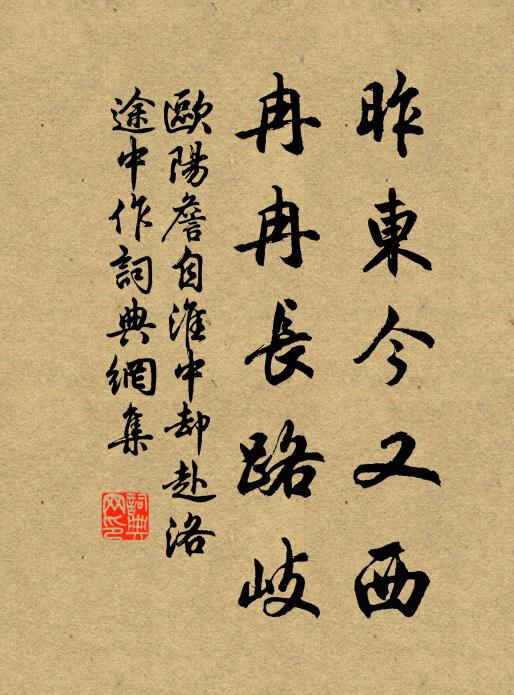 昨東今又西
冉冉長路岐
歐陽詹自淮中却赴洛
途中作詞典網集
詞典
网印